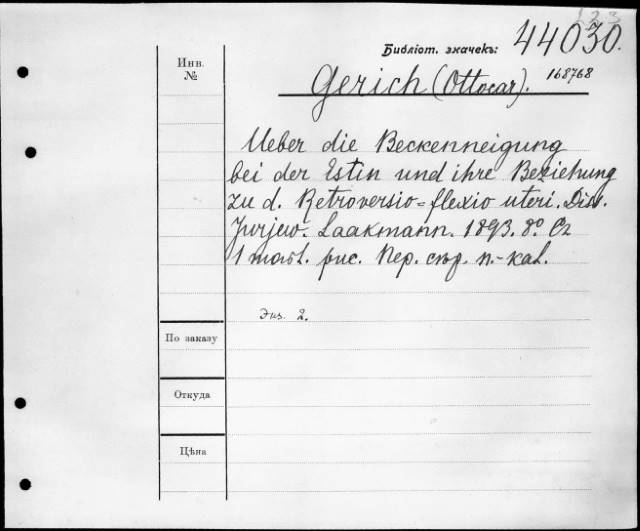 223
Библіот. значекъ: 44030.
Инв. №
Gerich (Ottocar). 168768
Ueber die Beckenneigung
bei der Estin und ihre Beziehung
zu d. Retroversio=flexio uteri. Diss.
Jurjew. Laakmann. 1893. 8° Съ
1 табл. рис. Пер. сѣр. п.-кал.
Экз. 2.
По заказу
Откуда
Цѣна